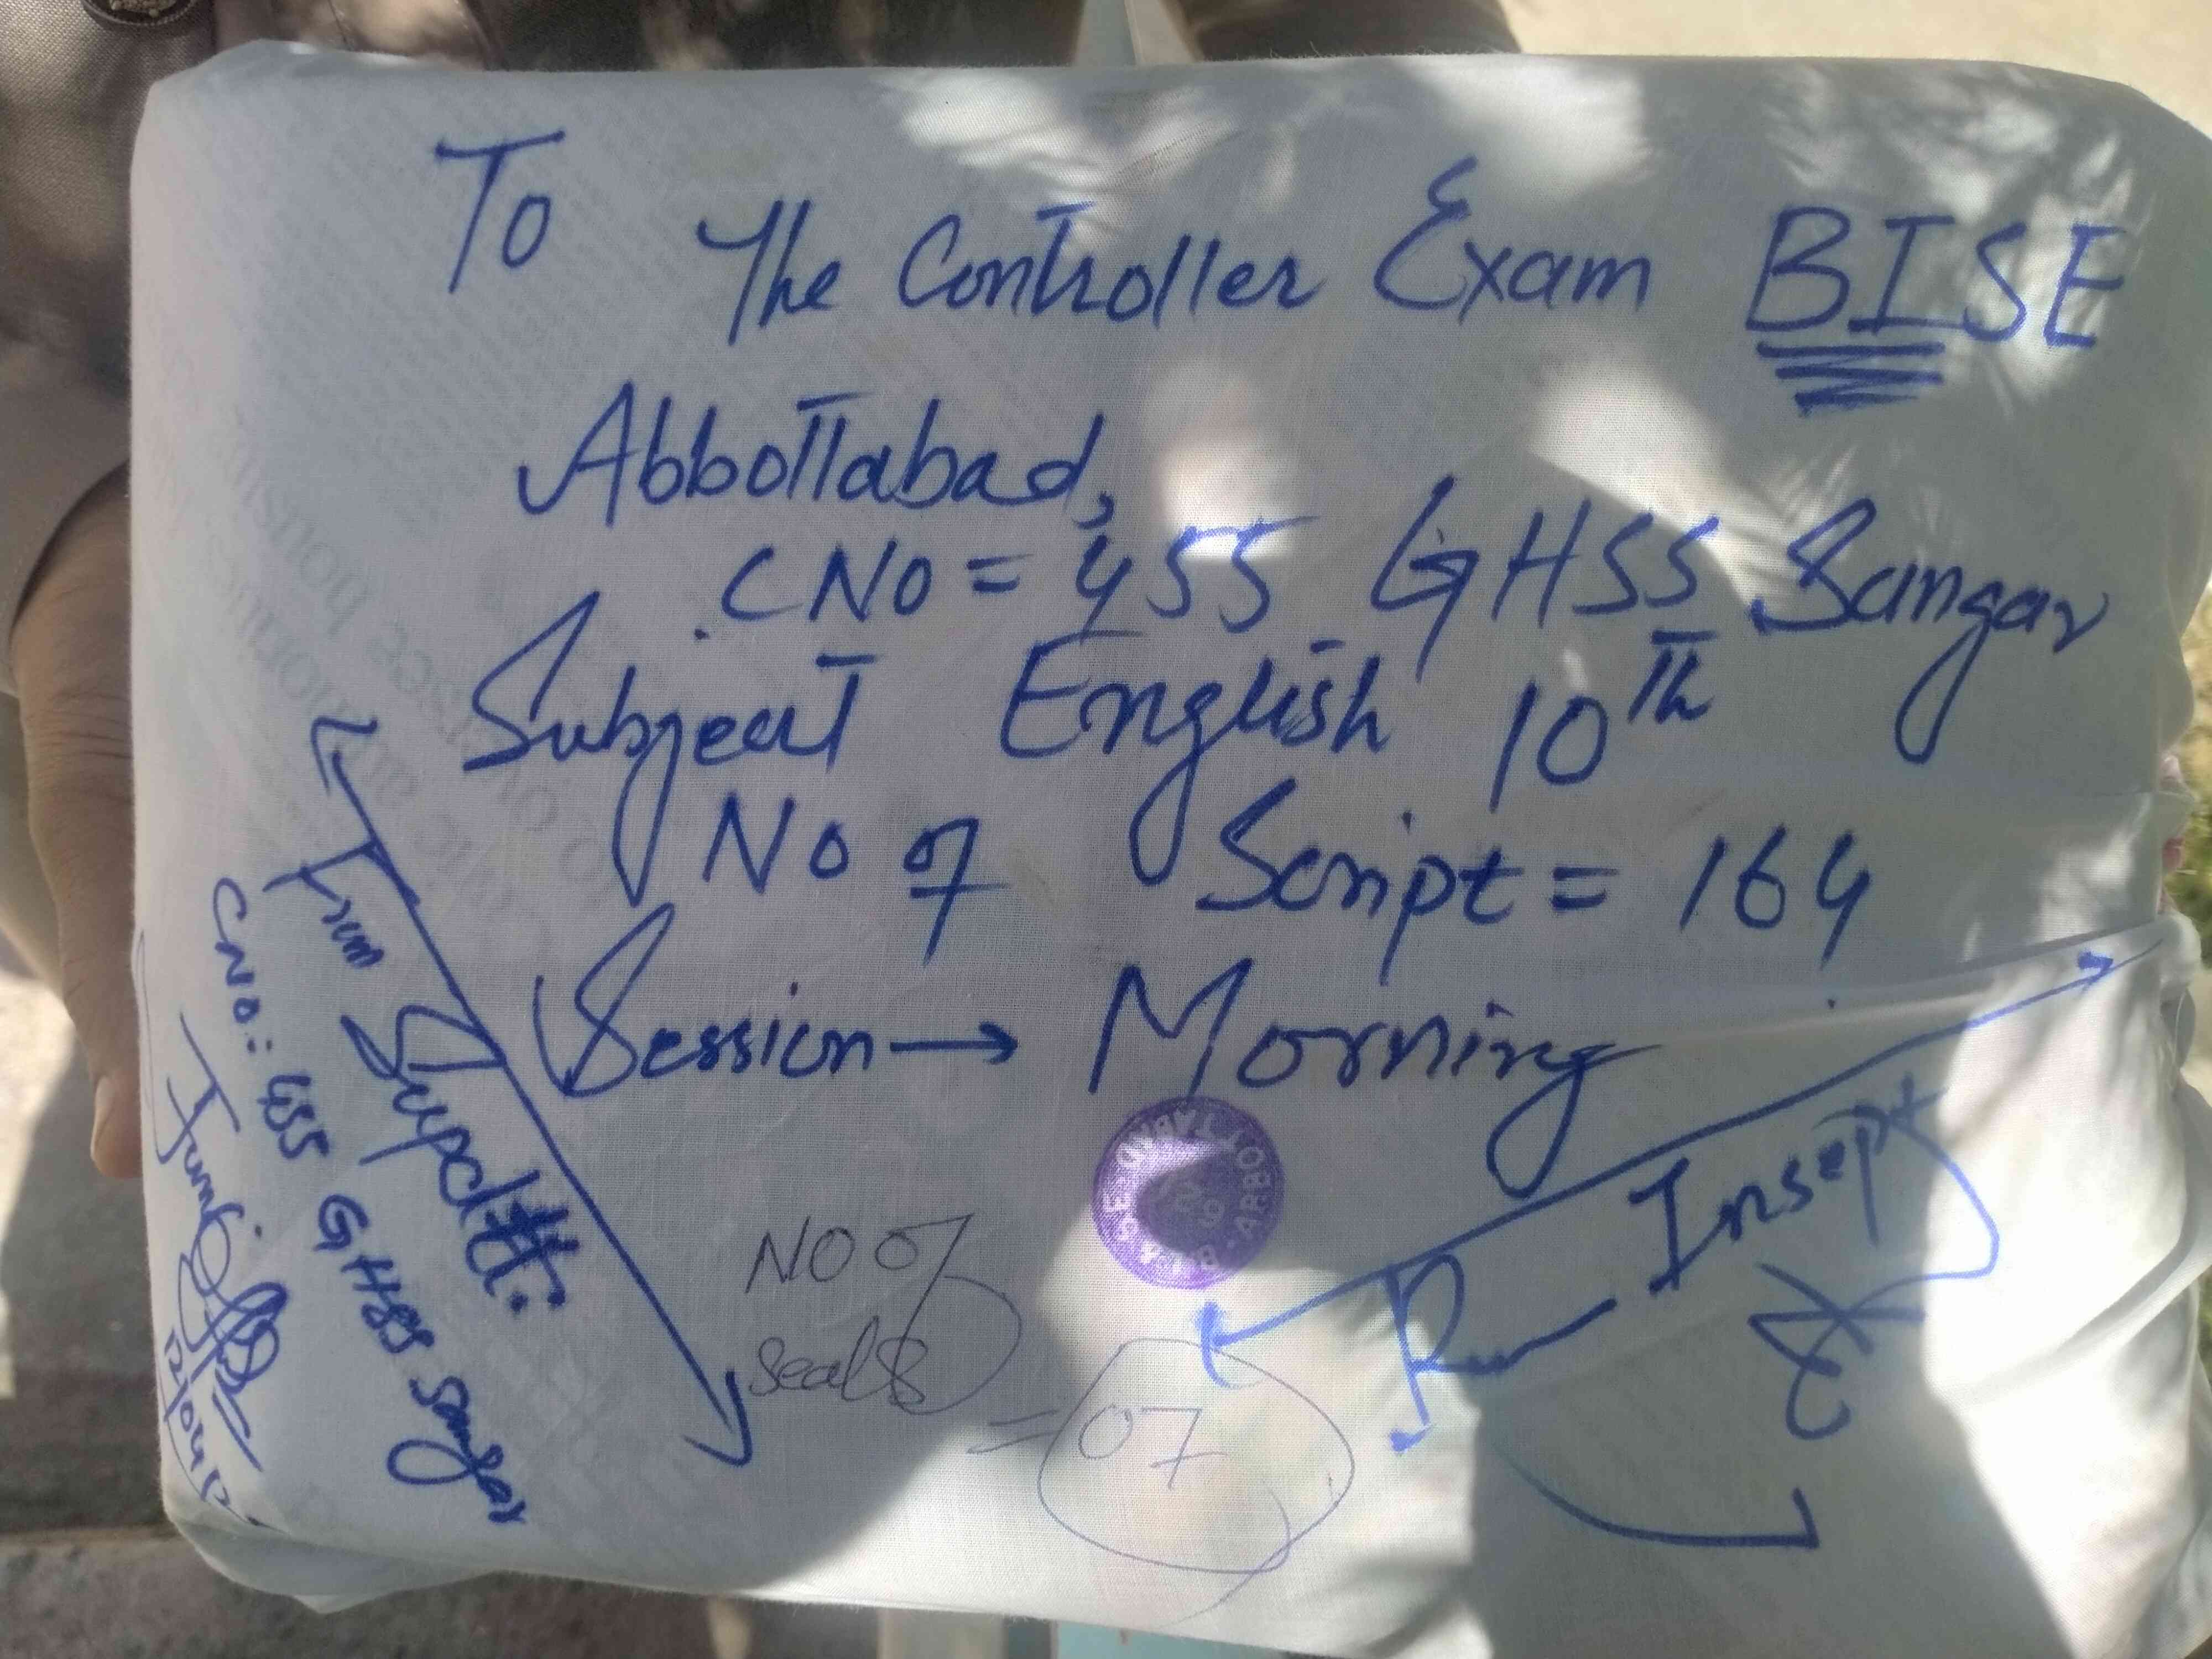 To
The Controller Exam BISE
Abbottabad,
CNo = 455 GHSS Sangar
Subject English 10th
No of Script = 164
Session → Morning
From Supdtt:
CNo.: 455 GHSS Sangar
NO of
seals
= 07
R Insept
ABBOTTABAD